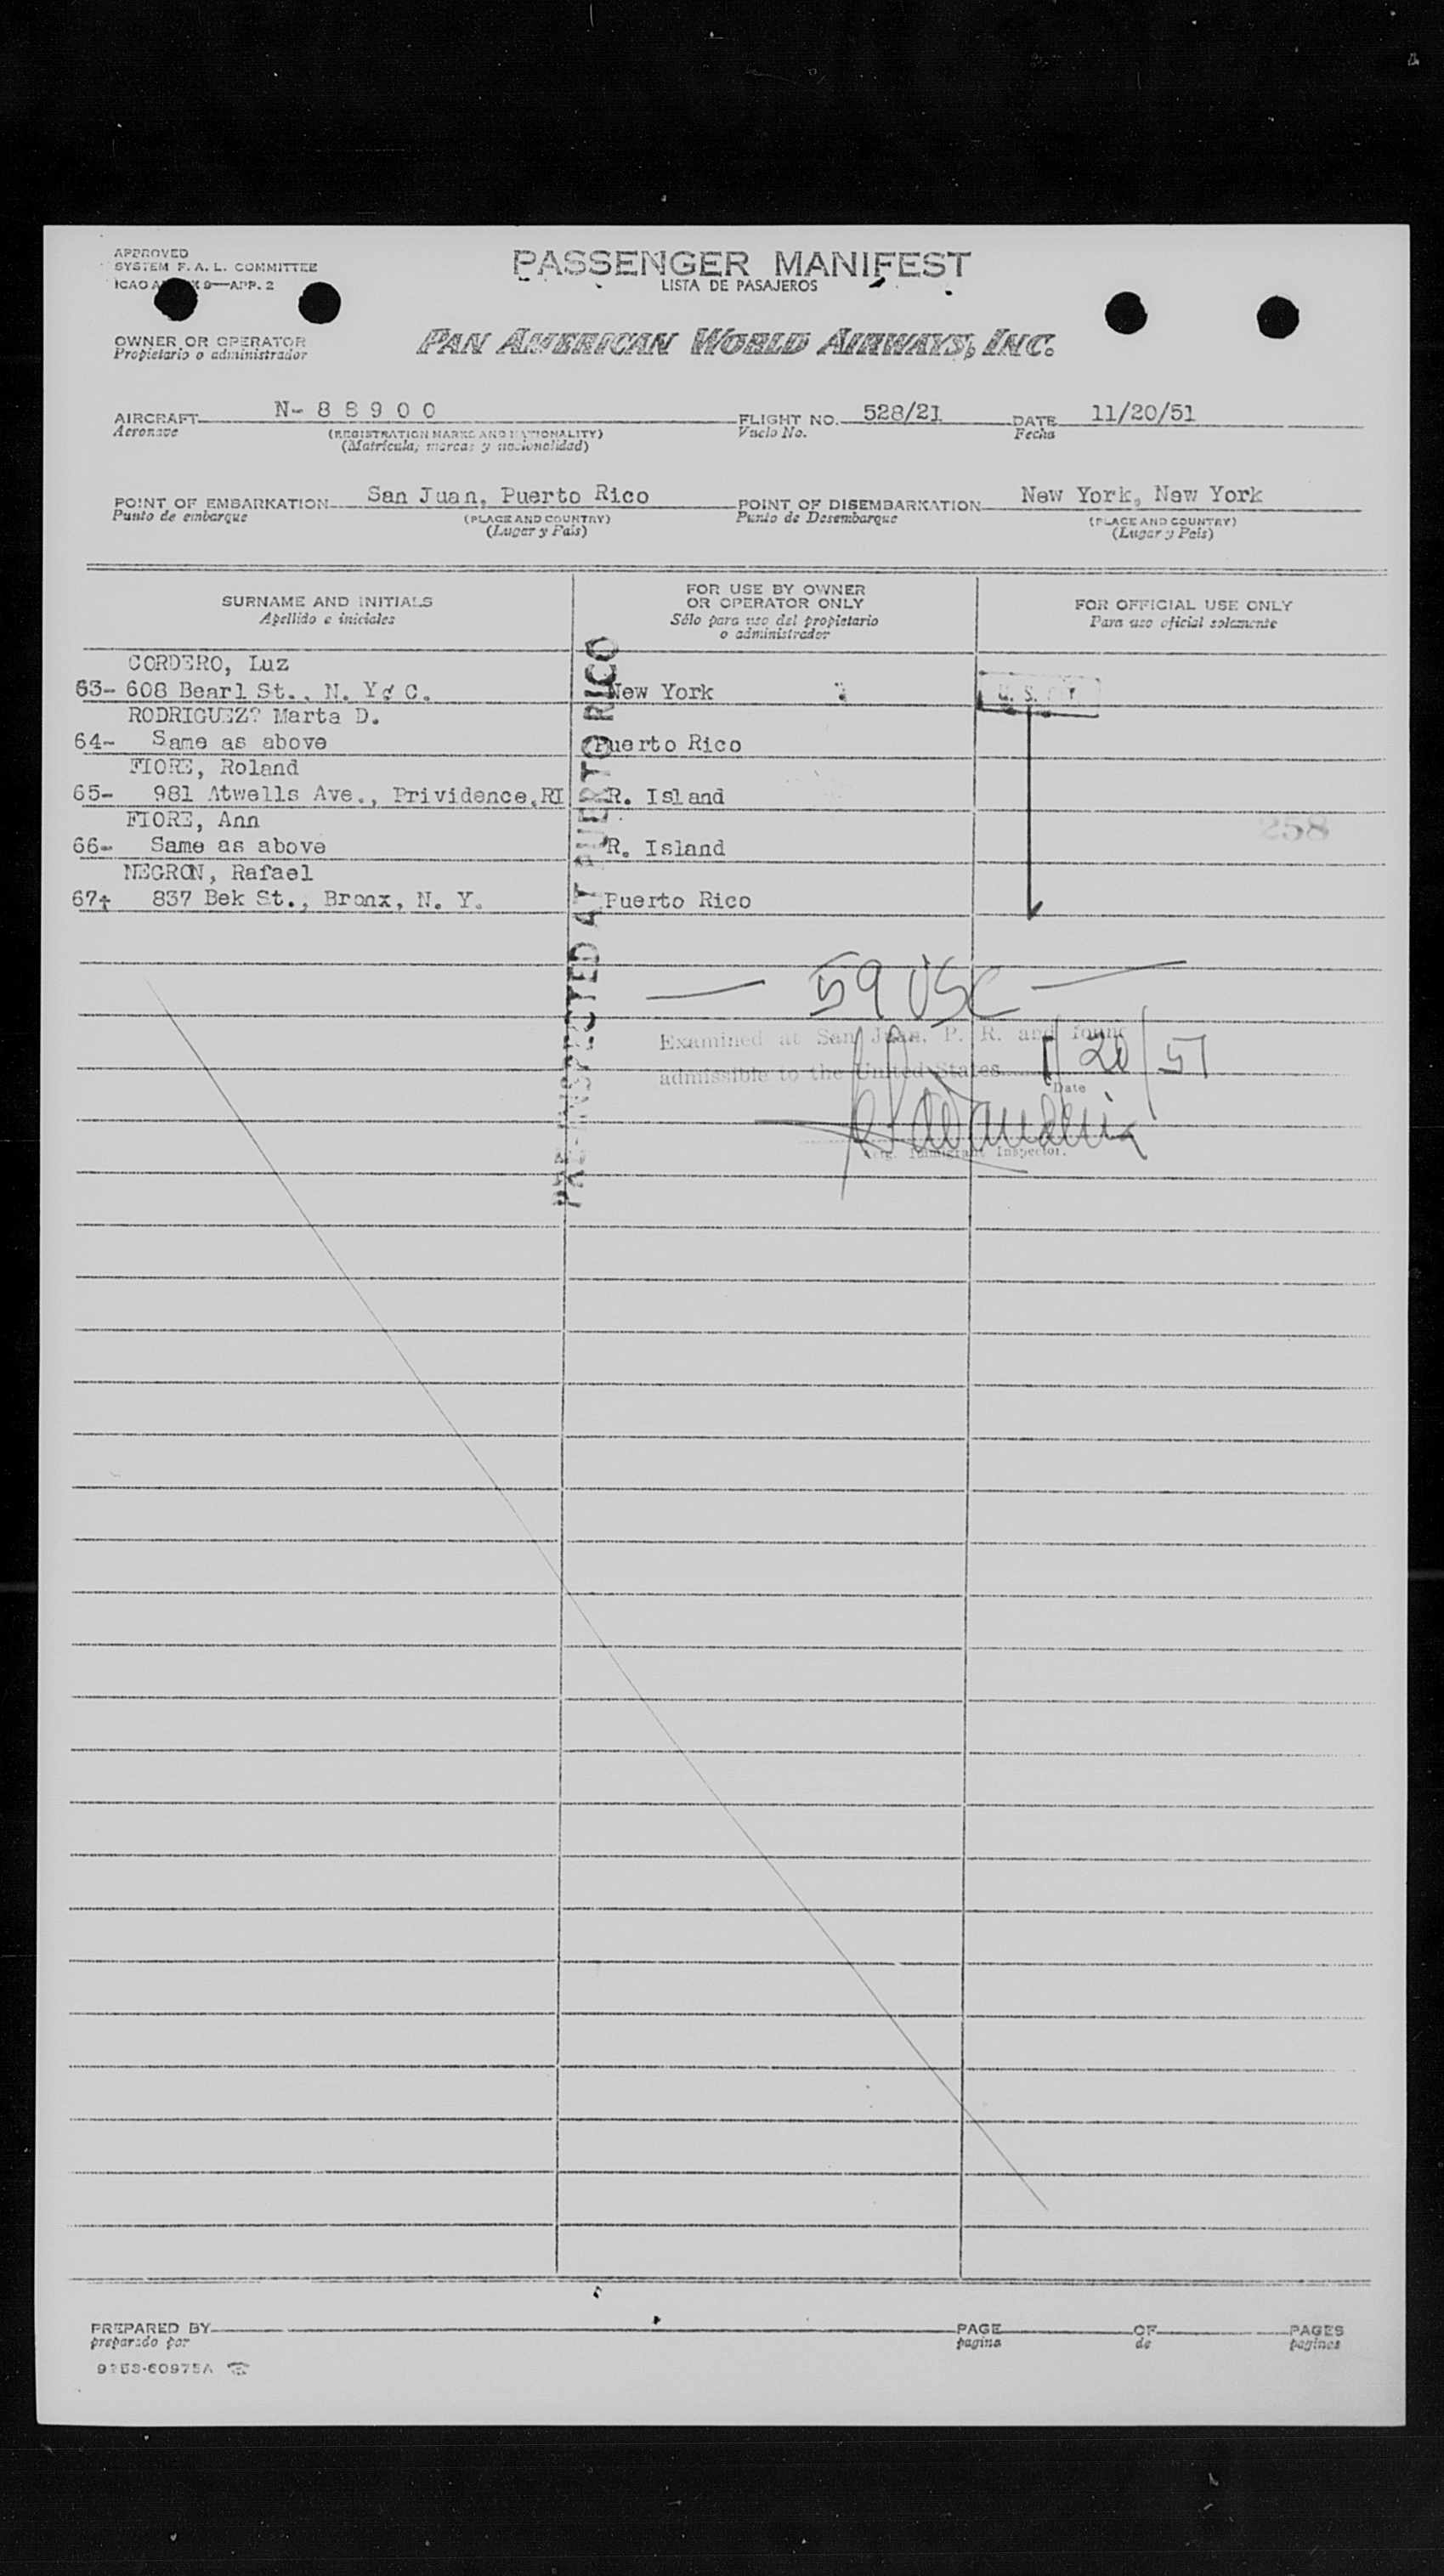 APPROVED
SYSTEM F. A. L. COMMITTEE
ICAO 9—APP. 2
PASSENGER MANIFEST
LISTA DE PASAJEROS
OWNER OR OPERATOR
Propietario o administrador
PAN AMERICAN WORLD AIRWAYS, INC.
AIRCRAFT N- 8 8 9 0 0 FLIGHT NO. 528/21 DATE 11/20/51
Aeronave (REGISTRATION MARKS AND NATIONALITY) Vuelo No. Fecha
(Matrícula, marcas y nacionalidad)
POINT OF EMBARKATION San Juan, Puerto Rico POINT OF DISEMBARKATION New York, New York
Punto de embarque (PLACE AND COUNTRY) Punto de Desembarque (PLACE AND COUNTRY)
(Lugar y País) (Lugar y País)
SURNAME AND INITIALS
Apellido e iniciales
FOR USE BY OWNER
OR OPERATOR ONLY
Sólo para uso del propietario
o administrador
FOR OFFICIAL USE ONLY
Para uso oficial solamente
CORDERO, Luz
63- 608 Bearl St., N. Y. C. New York U. S.
RODRIGUEZ? Marta D.
64- Same as above Puerto Rico
FIORE, Roland
65- 981 Atwells Ave., Prividence,RI R. Island
258
FIORE, Ann
66- Same as above R. Island
NEGRON, Rafael
67- 837 Bek St., Bronx, N. Y. Puerto Rico
PRE-INSPECTED AT PUERTO RICO
— 59 USC —
Examined at San Juan, P. R. and found
admissible to the United States 11/20/51
Date
Immigrant Inspector.
PREPARED BY PAGE OF PAGES
preparado por pagina de paginas
9153-60975A